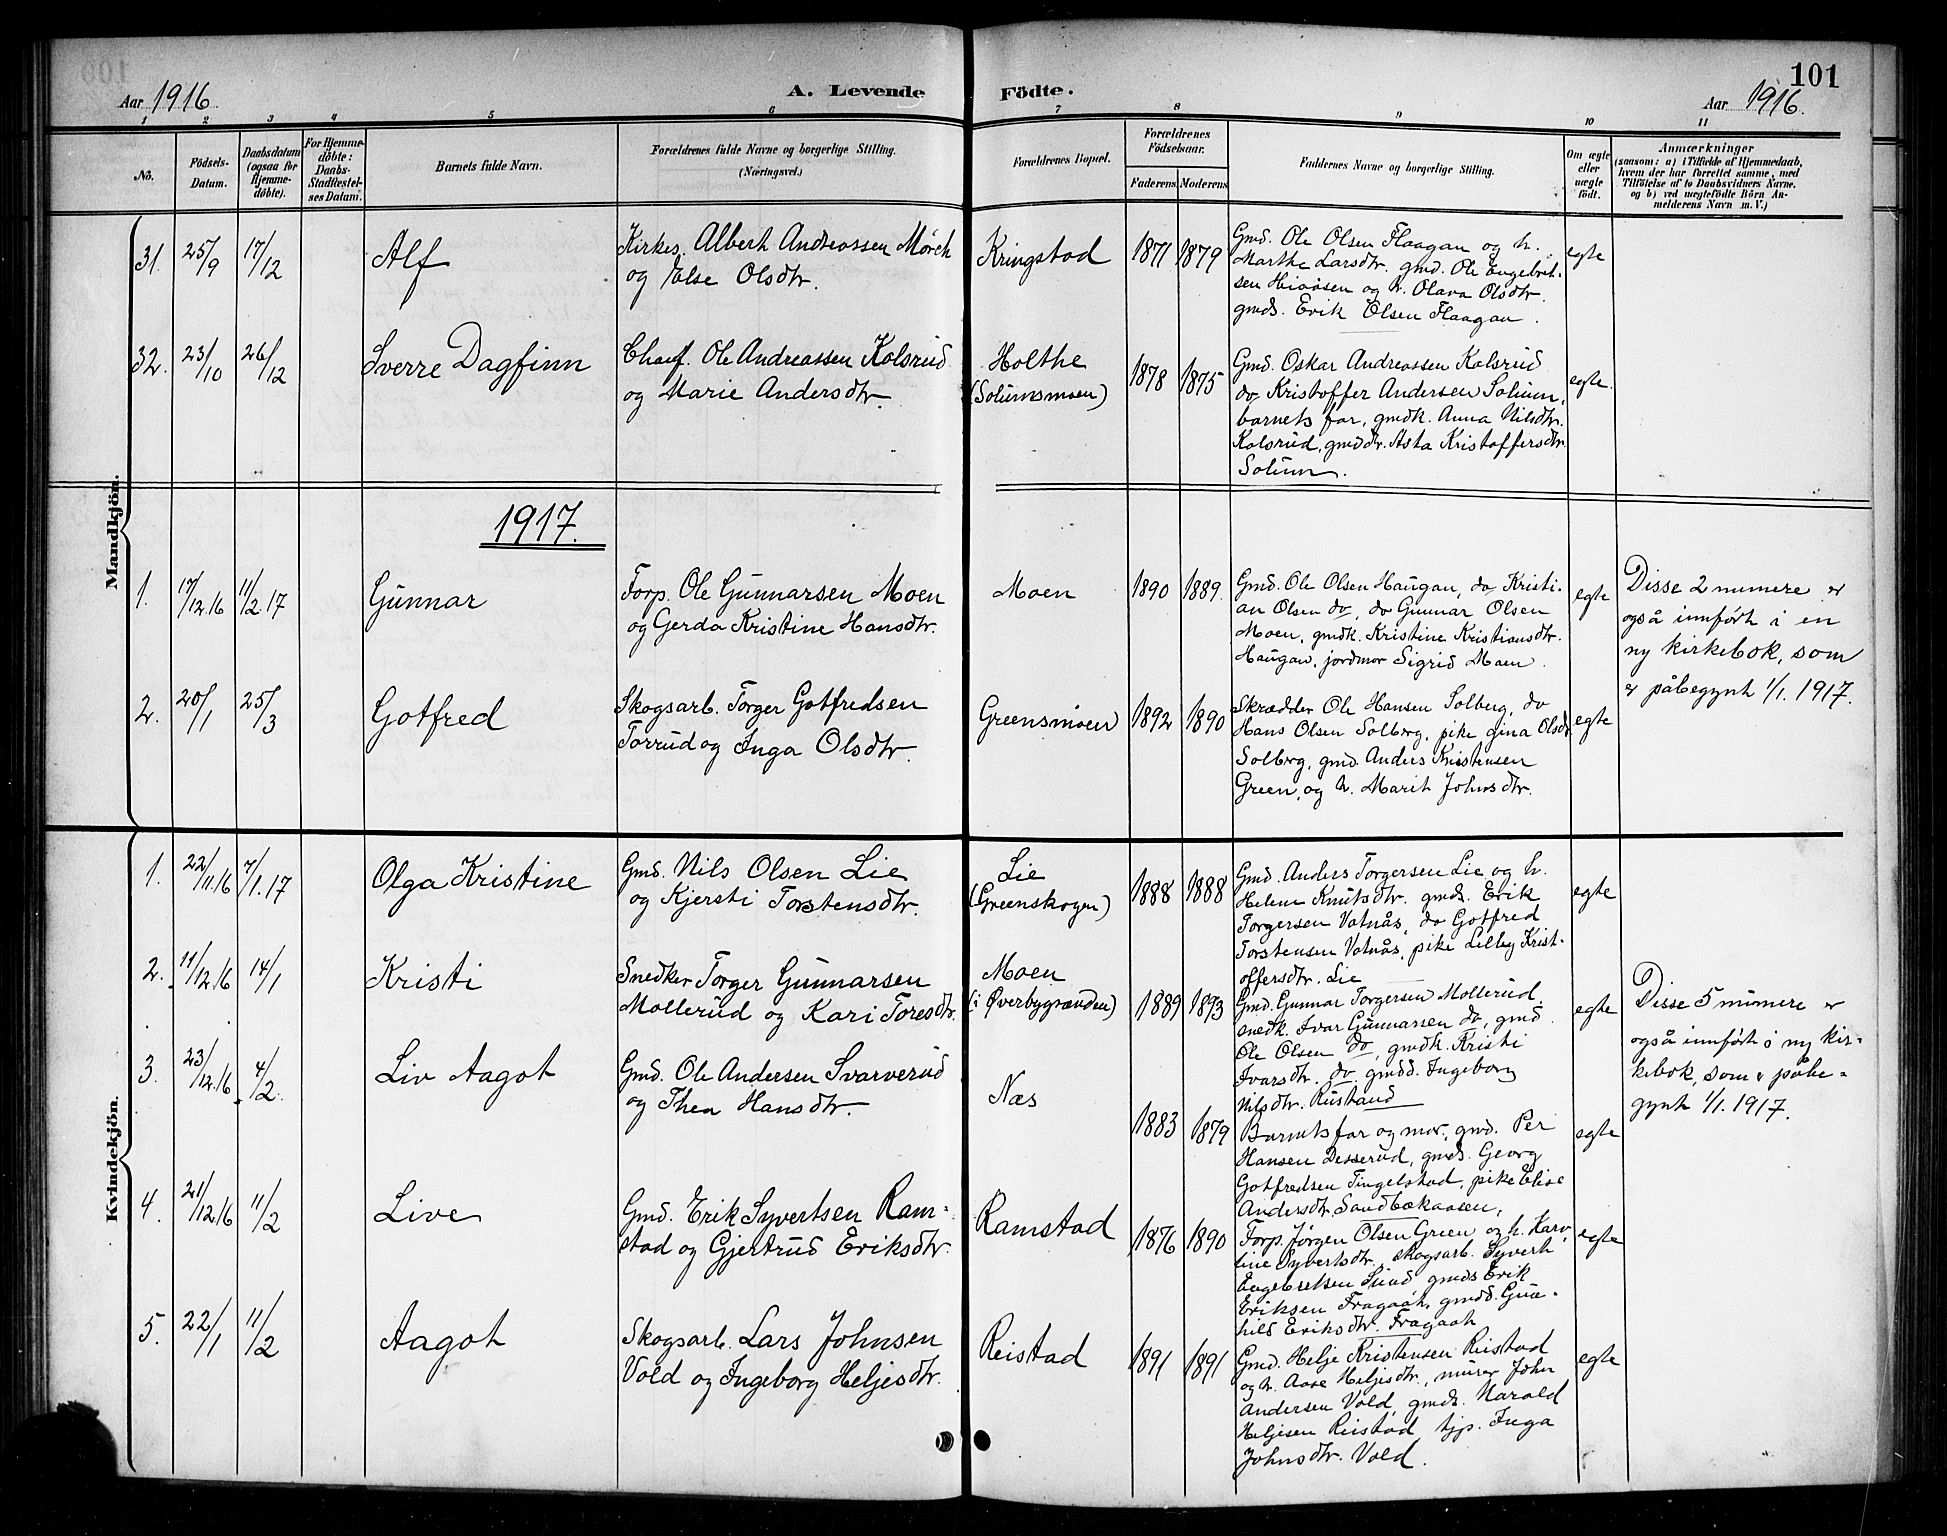 101
Aar 1916
A. Levende Födte.
Aar 1916.
1 2 3 4 5 6 7 8 9 10 11
No.
Födsels-
Datum.
Daabsdatum
(ogsaa for
Hjemme-
döbte).
For Hjemme-
döbte:
Daabs-
Stadfæstel-
ses Datum.
Barnets fulde Navn.
Forældrenes fulde Navne og borgerlige Stilling.
(Næringsvei.)
Forældrenes Bopæl.
Forældrenes
Födselsaar.
Faderens. Moderens.
Faddernes Navne og borgerlige Stilling.
Om ægte
eller
uægte
födt.
Anmærkninger
(saasom: a) i Tilfælde af Hjemmedaab,
hvem der har forrettet samme, med
Tilföielse af to Daabsvidners Navne,
og b) ved uægtefödte Börn An-
melderens Navn m. V.)
Mandkjön.
31. 25/9 17/12 Alf
Kirkes. Albert Andreassen Mørch
og Else Olsdtr.
Kringstad 1871 1879
Gmd. Ole Olsen Flaagan og h.
Marthe Larsdtr. gmd. Ole Engebret-
sen Hiaasen og h. Olava Olsdtr.
gmds. Erik Olsen Flaagan.
egte
32. 23/10 26/12 Sverre Dagfinn
Chauf. Ole Andreassen Kolsrud
og Marie Andersdtr.
Holthe
(Solumsmoen)
1878 1875
Gmd. Oskar Andreassen Kolsrud
do Kristoffer Andersen Solum,
barnets far, gmdk. Anna Nilsdtr.
Kolsrud, gmddtr. Asta Kristoffersdtr.
Solum.
egte.
1917.
1. 17/12.16 11/2.17 Gunnar
Forp. Ole Gunnarsen Moen
og Gerda Kristine Hansdtr.
Moen 1890 1889.
Gmd. Ole Olsen Haugan, do Kristi-
an Olsen do, do Gunnar Olsen
Moen, gmdk. Kristine Kristiansdtr.
Haugan, jordmor Sigrid Moen.
egte
Disse 2 numere er
også innført i en
ny kirkebok, som
er påbegynt 1/1. 1917.
2. 20/1 25/3 Gotfred
Skogsarb. Torger Gotfredsen
Torrud og Inga Olsdtr.
Greensmoen 1892 1890
Skrædder Ole Hansen Solberg, do
Hans Olsen Solberg, pike Gina Olsdtr
Solberg, gmd. Anders Kristensen
Green, og h. Marit Johnsdtr.
egte
Kvindekjön.
1. 22/11.16 7/1.17 Olga Kristine
Gmd. Nils Olsen Lie
og Kjersti Torstensdtr.
Lie
(Greenskogen)
1888 1888
Gmd. Anders Torgersen Lie og h.
Helene Knutsdtr. gmds. Erik
Torgersen Vatnås, do Gotfred
Torstensen Vatnås, pike Lilley Krist-
offersdtr. Lie
egte
2. 11/12.16 14/1 Kristi
Snedker Torger Gunnarsen
Mollerud og Kari Toresdtr.
Moen
(i Øverbygranden)
1889 1893
Gmd. Gunnar Torgersen Mollerud.
snedk. Ivar Gunnarsen do, gmd.
Ole Olsen do, gmdk. Kristi
Ivarsdtr. do. gmdd. Ingeborg
Nilsdtr. Rustand
egte
Disse 5 numere er
også innført i ny kir-
kebok, som er påbe-
gynt 1/1. 1917.
3. 23/12.16 4/2. Liv Aagot
Gmd. Ole Andersen Svarverud
og Thea Hansdtr.
Næs
1883 1879
Barnets far og mor, gmd. Per
Hansen Desserud, gmds. Georg
Gotfredsen Tingelstad, pike Elise
Andersdtr. Sandbækaasen,
egte
4. 21/12.16 11/2 Live
Gmd. Erik Syvertsen Ram-
stad og Gjertrud Eriksdtr.
Ramstad 1876 1890
Forp. Jørgen Olsen Green og h. Karo-
line Syvertsdtr. skogsarb. Syvert
Engebretsen Sund, gmds Erik
Eriksen Fragaat, gmdd. Gun-
hild Eriksdtr. Fragaat
egte
5. 22/1 11/2 Aagot
Skogsarb. Lars Johnsen
Vold og Ingeborg Heljesdtr.
Reistad 1891 1891
Gmd. Helje Kristensen Reistad
og h. Aase Heljesdtr., murer John
Andersen Vold, gmds. Harald
Heljesen Reistad tjp. Inga
Johnsdtr. Vold.
egte